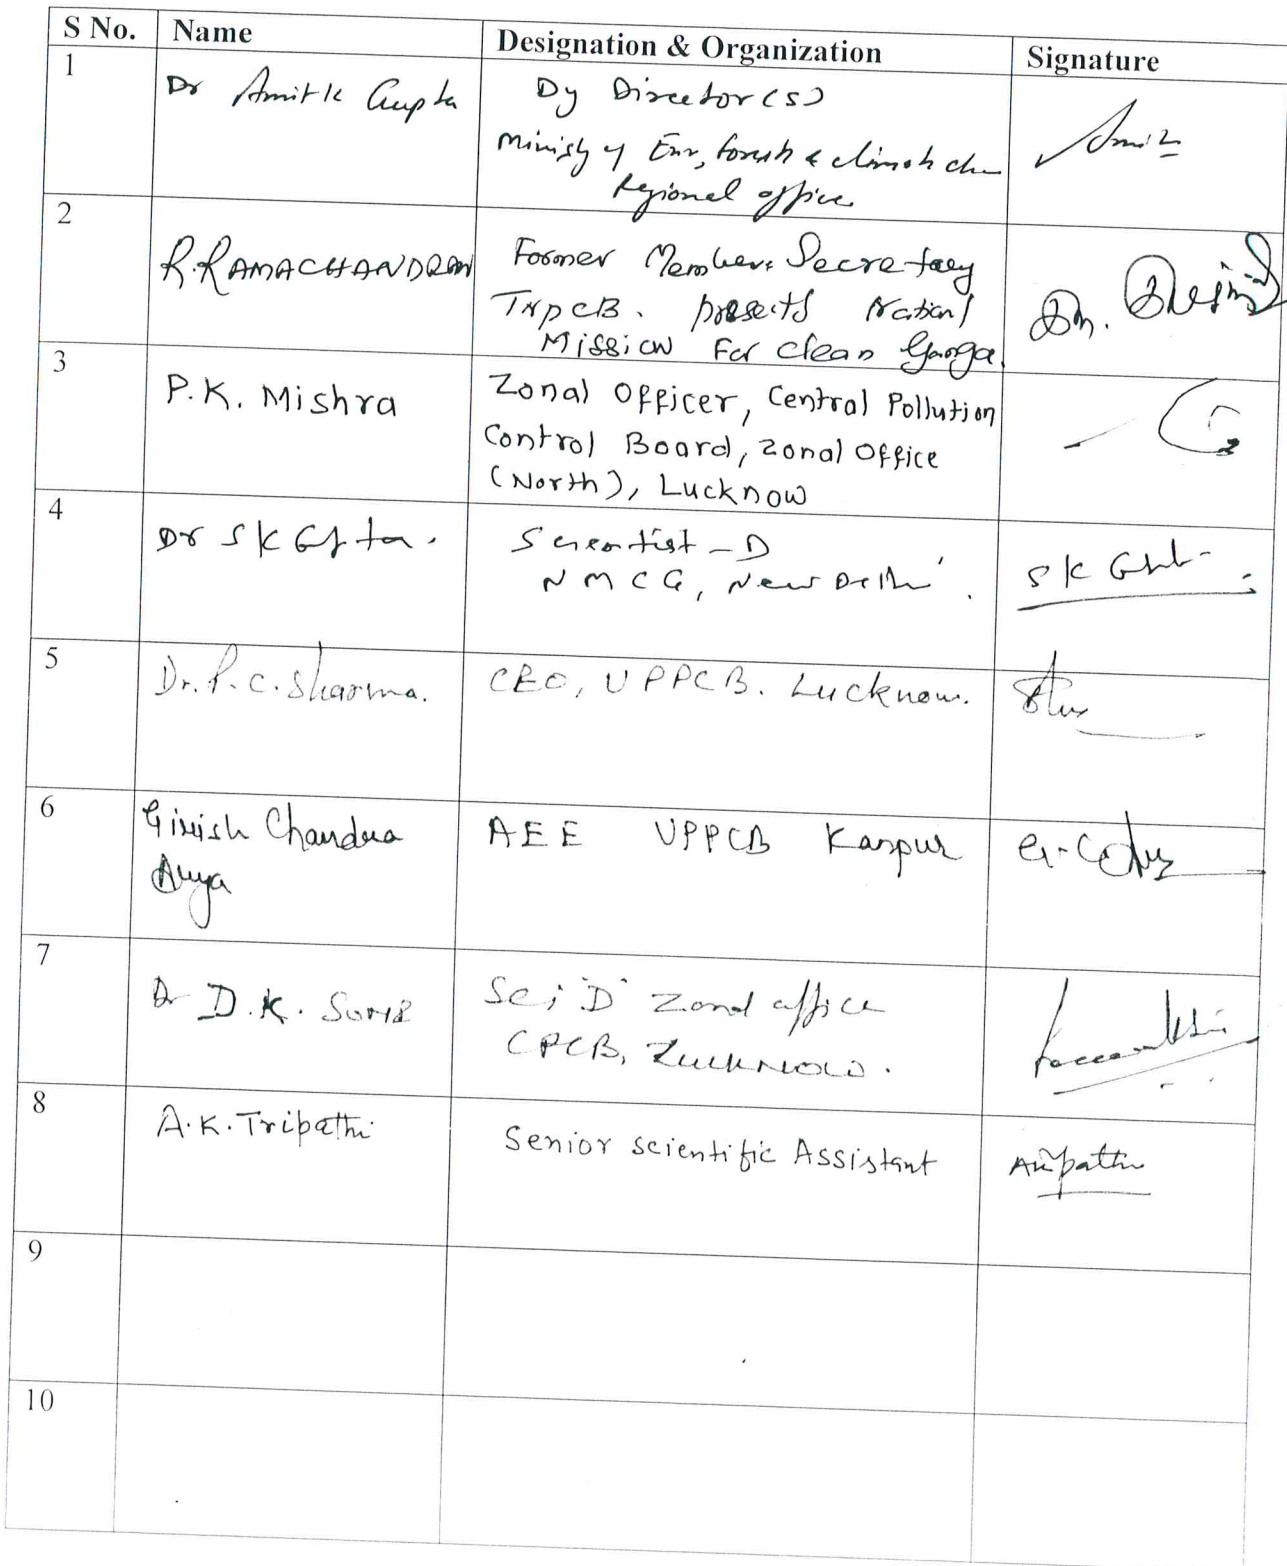 S No. Name Designation & Organization Signature
1 Dr Amit K Gupta Dy Director (S)
Ministry of Env, forest & climate
Regional office
2 R. RAMACHANDRAN Former Member Secretary
TNPCB. National
Mission For clean Ganga.
3 P.K. Mishra Zonal Officer, Central Pollution
Control Board, Zonal Office
(North), Lucknow
4 Dr S K Gupta. Scientist - D
NMCG, New Delhi. S K
5 Dr. P. C. Sharma. CEO, UPPCB. Lucknow.
6 Girish Chandra AEE UPPCB Kanpur
Arya
7 Dr D.K. Soni Sci 'D' Zonal office
CPCB, Lucknow.
8 A.K. Tripathi Senior scientific Assistant
9
10